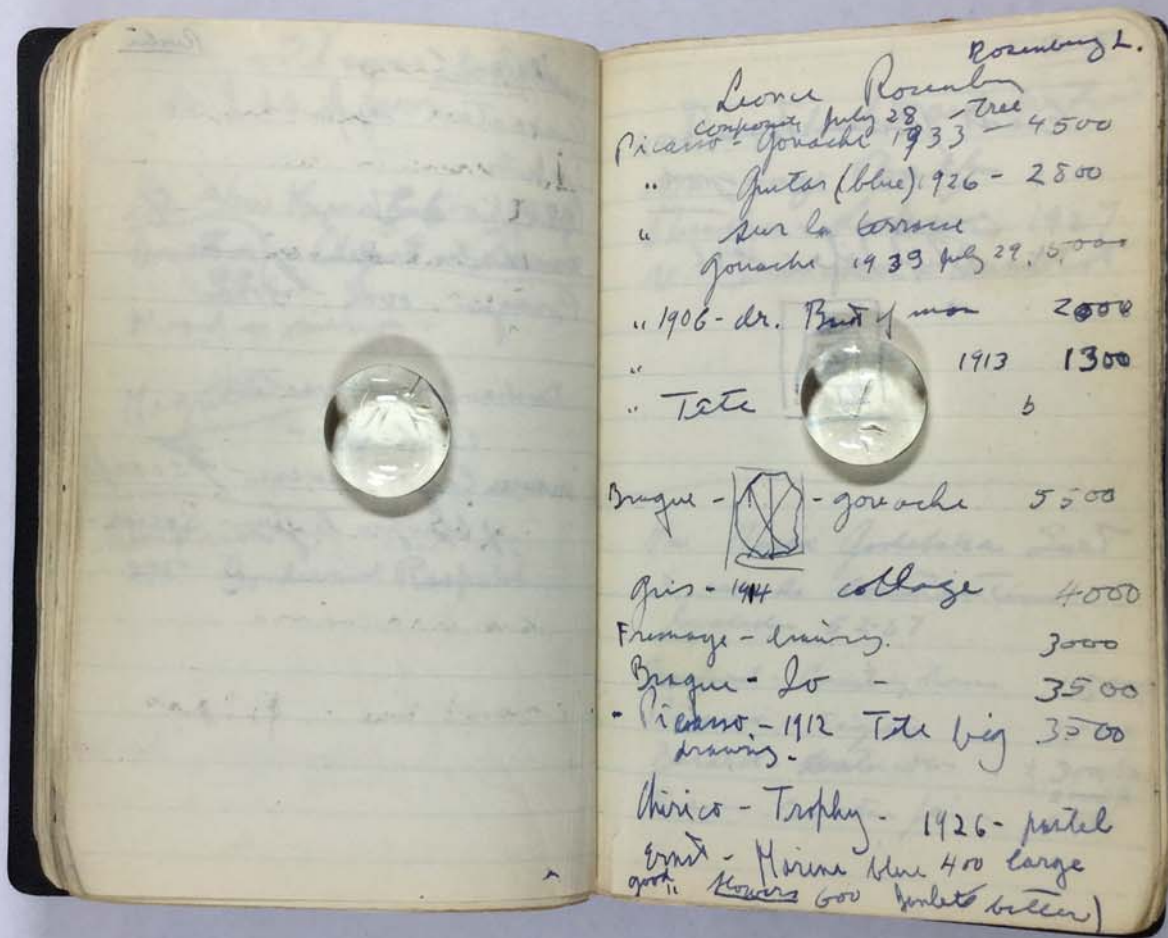 Rosenberg L.
Leonce Rosenberg
composite July 28 - Tree
Picasso - Gouache 1933 - 4500
" Guitar (blue) 1926 - 2800
" sur la terrasse
gouache 1933 July 29. 15,000
" 1906 - dr. Bust of man 2000
" 1913 1300
" Tête b
Braque - - gouache 5500
Gris - 1914 collage 4000
Fromage - 3000
Braque - Do - 3500
- Picasso - 1912 Tete big 3500
drawing -
Chirico - Trophy - 1926 - pastel
Ernst - Marine blue 400 large
good " flowers 600 better)